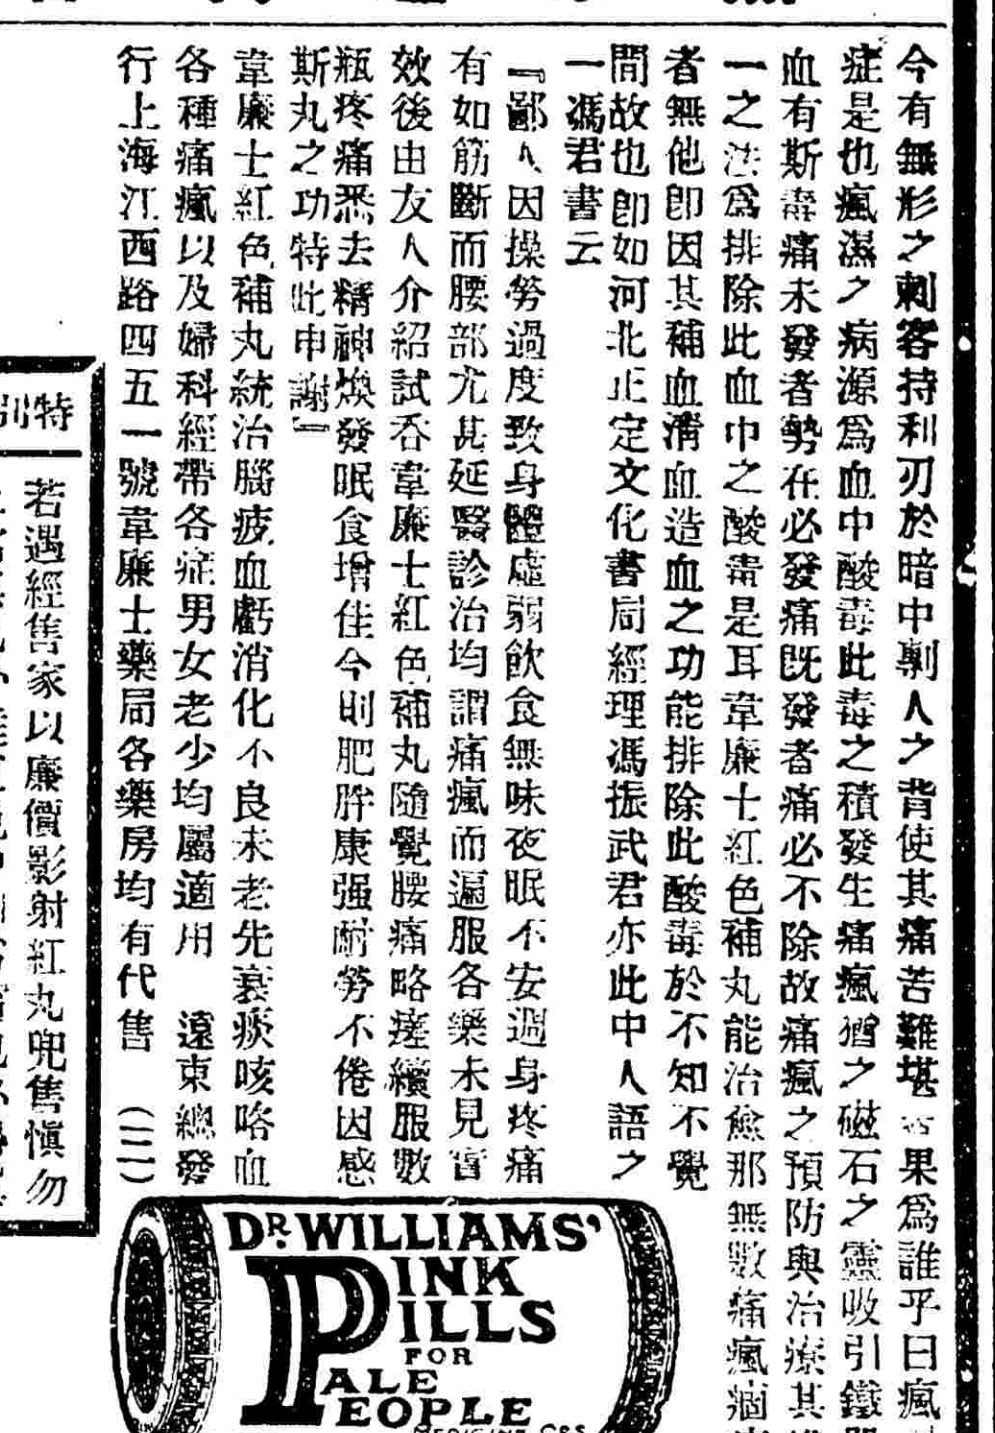 今有無形之刺客持利刃於暗中剸人之背使其痛苦難堪者果爲誰乎曰瘋
症是也瘋濕之病源爲血中酸毒此毒之積發生痛瘋猶之磁石之靈吸引鐵
血有斯毒痛未發者勢在必發痛既發者痛必不除故痛瘋之預防與治療其
一之法爲排除此血中之酸毒是耳韋廉士紅色補丸能治愈那無數痛瘋痼
者無他卽因其補血清血造血之功能排除此酸毒於不知不覺
間故也卽如河北正定文化書局經理馮振武君亦此中人語之
一馮君書云
『鄙人因操勞過度致身體虛弱飲食無味夜眠不安週身疼痛
有如筋斷而腰部尤甚延醫診治均謂痛瘋而遍服各藥未見實
效後由友人介紹試吞韋廉士紅色補丸隨覺腰痛略瘥續服數
瓶疼痛悉去精神煥發眠食增佳今則肥胖康强耐勞不倦因感
斯丸之功特此申謝』
韋廉士紅色補丸統治腦疲血虧消化不良未老先衰痰咳咯血
各種痛瘋以及婦科經帶各症男女老少均屬適用 遠東總發
行上海江西路四五一號韋廉士藥局各藥房均有代售 (二二)
特別
若遇經售家以廉價影射紅丸兜售愼勿
DR. WILLIAMS'
PINK
PILLS
FOR
PALE
PEOPLE